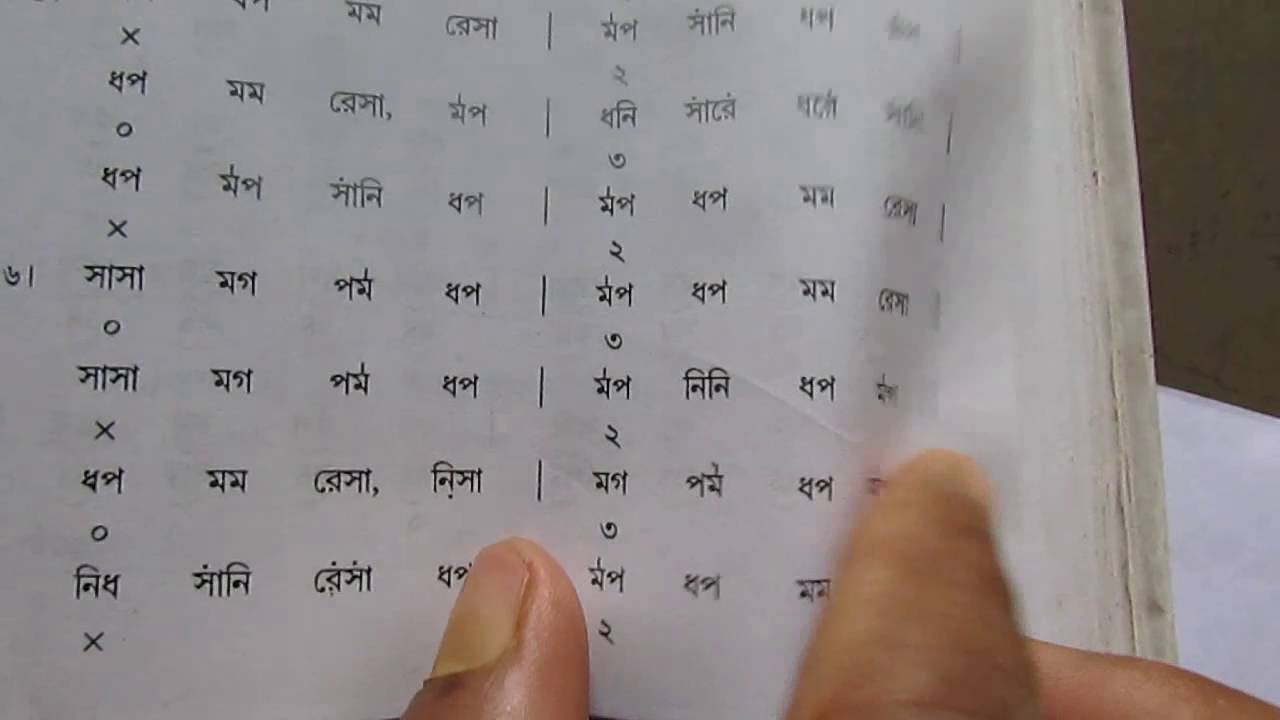 মম রেসা | র্মপ সাঁনি ধপ
× ২
ধপ মম রেসা, র্মপ | ধনি সাঁরেঁ
০ ৩
ধপ র্মপ সাঁনি ধপ | র্মপ ধপ মম রেসা |
× ২
৬। সাসা মগ পর্ম ধপ | র্মপ ধপ মম রেসা |
০ ৩
সাসা মগ পর্ম ধপ | র্মপ নিনি ধপ র্মপ
× ২
ধপ মম রেসা, নি়সা | মগ পর্ম ধপ
০ ৩
নিধ সাঁনি রেঁসাঁ ধপ র্মপ ধপ মম
× ২